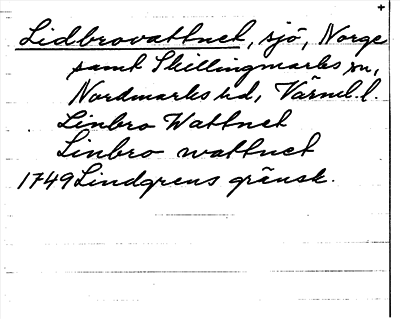 +
Lidbrovattnet, sjö, Norge
samt Skillingmarks sn,
Nordmarks hd, Värml. l.
Linbro Wattnet
Linbro wattnet
1749 Lindgrens gränsk.